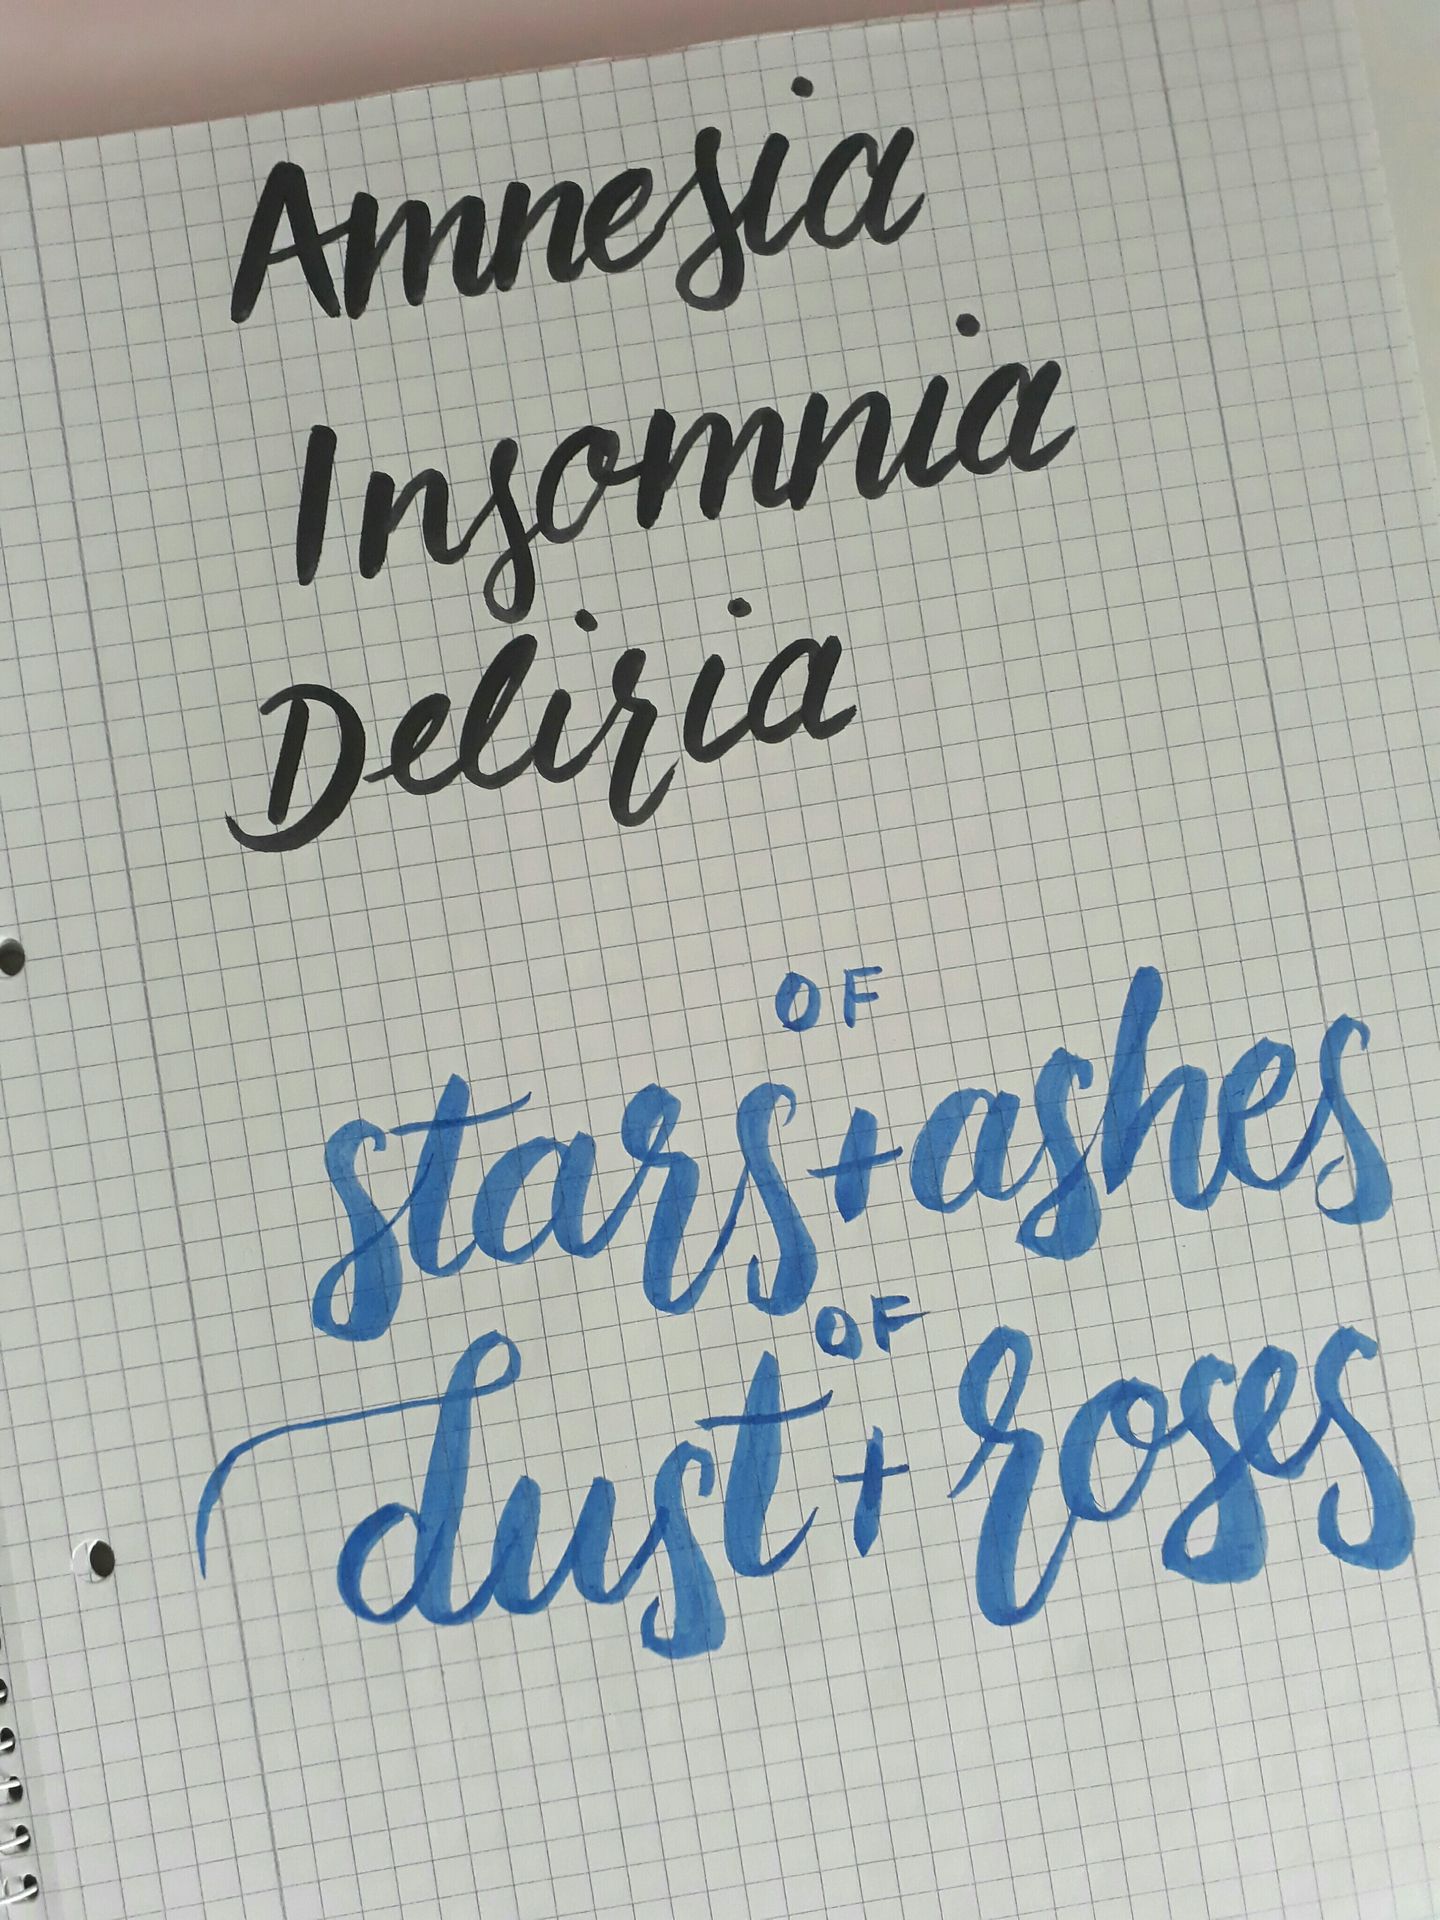 Amnesia
Insomnia
Deliria
OF
stars + ashes
OF
dust + roses